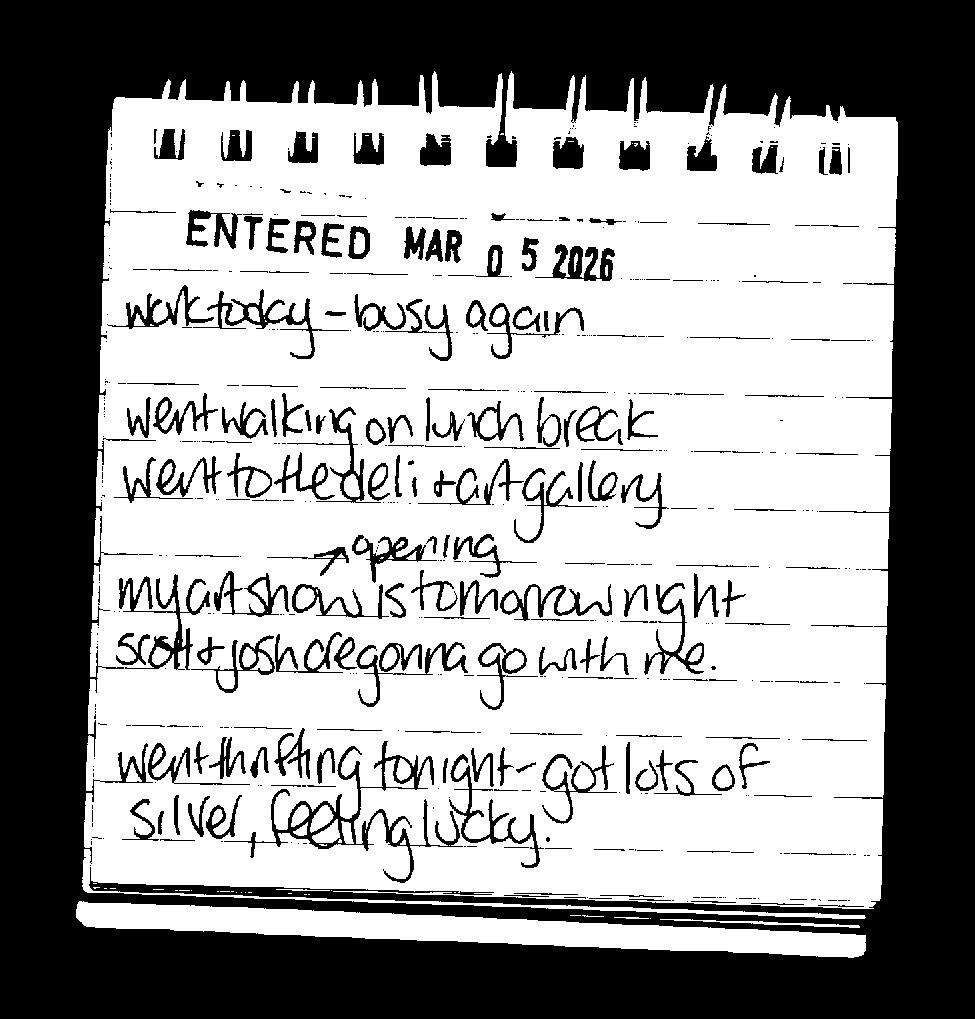 ENTERED MAR 05 2026
work today - busy again
went walking on lunch break
went to the deli + art gallery
↗ opening
my art show is tomorrow night
scott + josh are gonna go with me.
went thrifting tonight - got lots of
silver, feeling lucky.